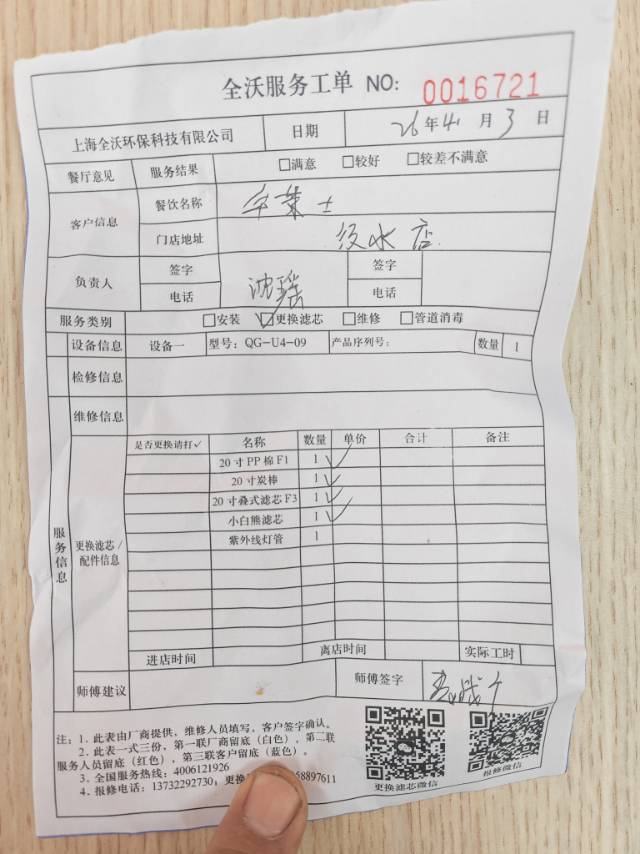 全沃服务工单 NO: 0016721
上海全沃环保科技有限公司 日期 26年4月3日
餐厅意见 服务结果 □满意 □较好 □较差不满意
客户信息 餐饮名称 华莱士
门店地址 店
负责人 签字 沈瑶 签字
电话 电话
服务类别 □安装 □更换滤芯 □维修 □管道消毒
设备信息 设备一 型号: QG-U4-09 产品序列号: 数量 1
检修信息
维修信息
服务信息 更换滤芯/配件信息
是否更换请打✓ 名称 数量 单价 合计 备注
20寸PP棉F1 1 ✓
20寸炭棒 1 ✓
20寸叠式滤芯F3 1 ✓
小白熊滤芯 1 ✓
紫外线灯管 1
进店时间 离店时间 实际工时
师傅建议 师傅签字
注: 1. 此表由厂商提供, 维修人员填写, 客户签字确认。
2. 此表一式三份, 第一联厂商留底(白色), 第二联
服务人员留底(红色), 第三联客户留底(蓝色)。
3. 全国服务热线: 4006121926
4. 报修电话: 13732292730, 更换 68897611
更换滤芯微信 报修微信